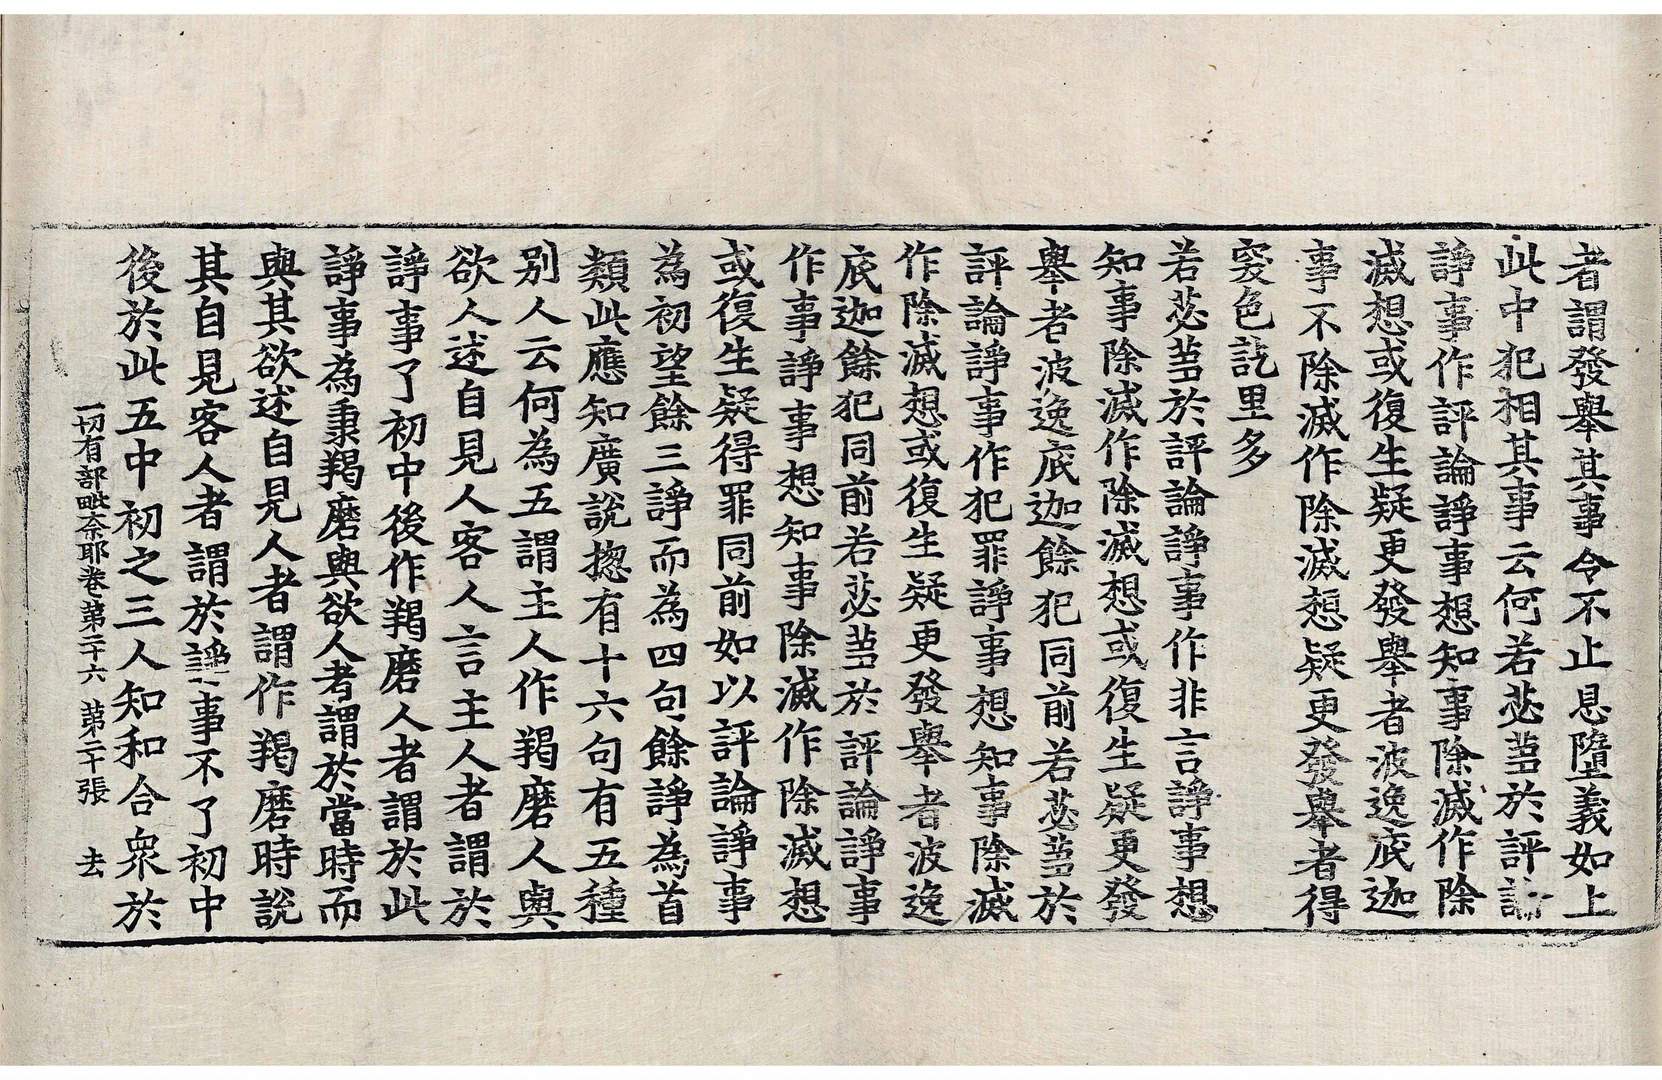 者謂發舉其事令不止息墮義如上
此中犯相其事云何若苾蒭於評論
諍事作評論諍事想知事除滅作除
滅想或復生疑更發舉者波逸底迦
事不除滅作除滅想疑更發舉者得
突色訖里多
若苾蒭於評論諍事作非言諍事想
知事除滅作除滅想或復生疑更發
舉者波逸底迦餘犯同前若苾蒭於
評論諍事作犯罪諍事想知事除滅
作除滅想或復生疑更發舉者波逸
底迦餘犯同前若苾蒭於評論諍事
作事諍事想知事除滅作除滅想
或復生疑得罪同前如以評論諍事
為初望餘三諍而為四句餘諍為首
類此應知廣說揔有十六句有五種
別人云何為五謂主人作羯磨人與
欲人述自見人客人言主人者謂於
諍事了初中後作羯磨人者謂於此
諍事為秉羯磨與欲人者謂於當時而
與其欲述自見人者謂作羯磨時說
其自見客人者謂於諍事不了初中
後於此五中初之三人知和合衆於
一切有部毗奈耶卷第二十六 第二十張 去